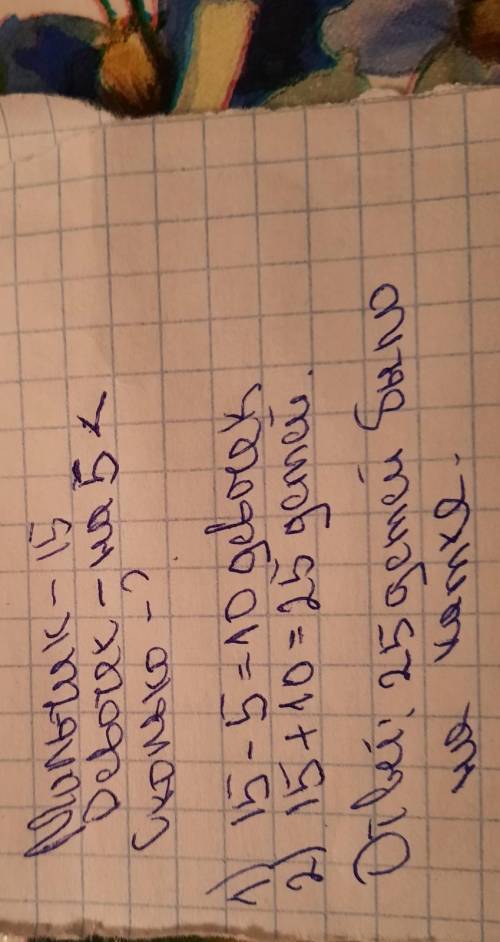 Мальчик - 15
Девочек - на 5 <
Сколько - ?
1) 15 - 5 = 10 девочек
2) 15 + 10 = 25 детей.
Ответ: 25 детей было
на катке.